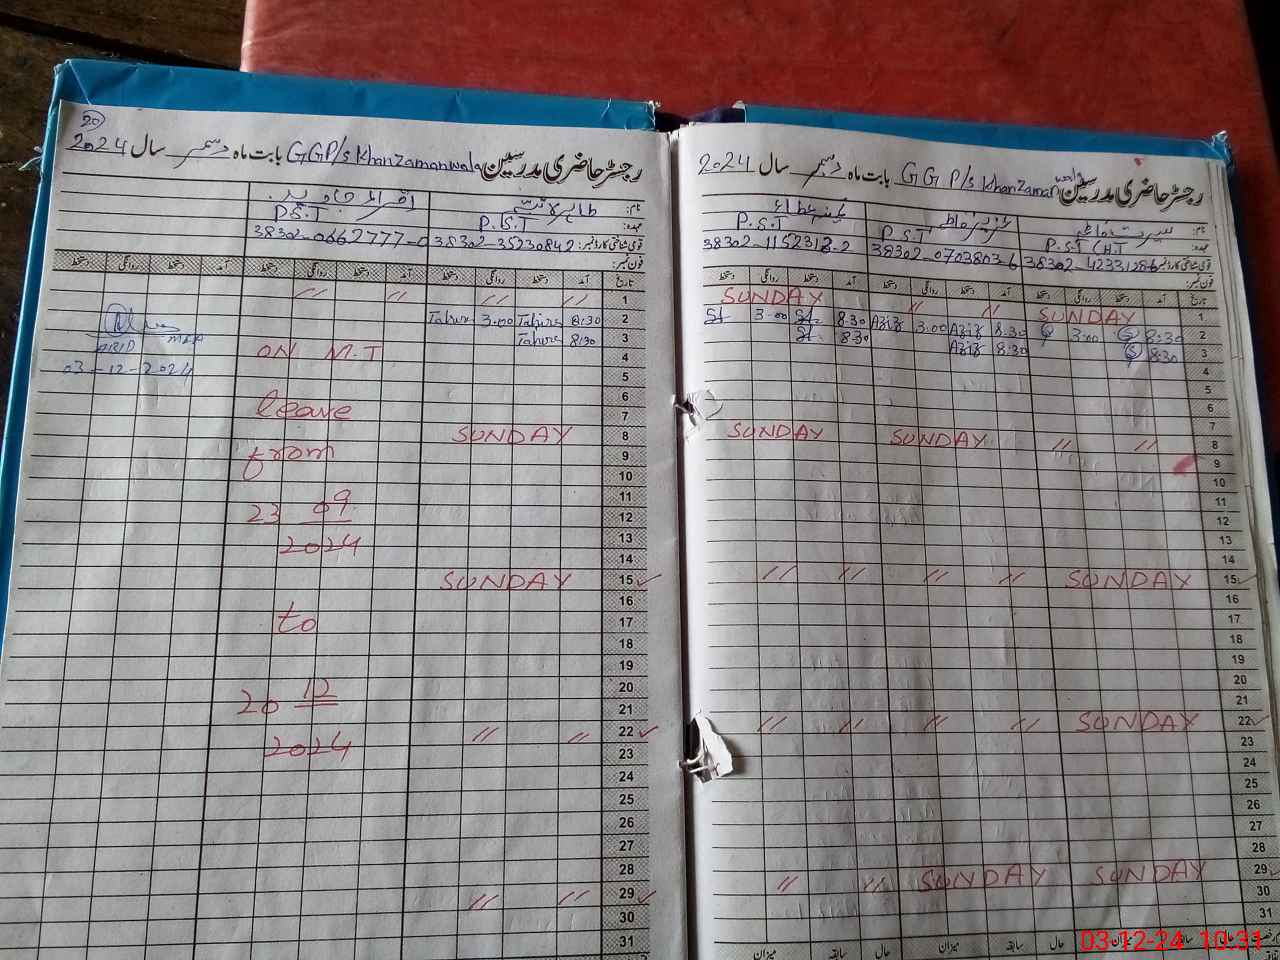 20
رجسٹر حاضری مدرسین GGP/s Khanzamanwala بابت ماہ دسمبر سال 2024
نام:
عہدہ: P.S.T P.S.T
قومی شناختی کارڈ نمبر: 38302-35230842 38302-0662777-0
فون نمبر:
تاریخ آمد دستخط روانگی دستخط آمد دستخط روانگی دستخط آمد دستخط روانگی دستخط
1 〃 〃 〃 〃
2 8:30 Tahira 3:00 Tahira
3 8:30 Tahira
ON M.T
4
03-12-2024
5
6
leave
7
8 SUNDAY
9 from
10
11
23 09
12
13
2024
14
15 SUNDAY
16
17 to
18
19
20
20 12
21
22 〃 〃
2024
23
24
25
26
27
28
29 〃 〃
30
31
رجسٹر حاضری مدرسین GGP/s Khanzaman بابت ماہ دسمبر سال 2024
نام:
عہدہ: P.S.T / H.T P.S.T P.S.T
قومی شناختی کارڈ نمبر: 38302-4233128-6 38302-0703803-6 38302-1152312-2
فون نمبر:
تاریخ آمد دستخط روانگی دستخط آمد دستخط روانگی دستخط آمد دستخط روانگی دستخط
1 SUNDAY 〃 〃 SUNDAY
2 8:30 3:00 8:30 Aziz 3:00 Aziz 8:30 3:00
3 8:30 8:30 Aziz 8:30
4
5
6
7
8 〃 〃 SUNDAY SUNDAY
9
10
11
12
13
14
15 SUNDAY 〃 〃 〃 〃
16
17
18
19
20
21
22 SUNDAY 〃 〃 〃 〃
23
24
25
26
27
28
29 SUNDAY SUNDAY 〃 〃
30
31
حال سابقہ میزان حال سابقہ میزان حال سابقہ میزان
03-12-24 10:31